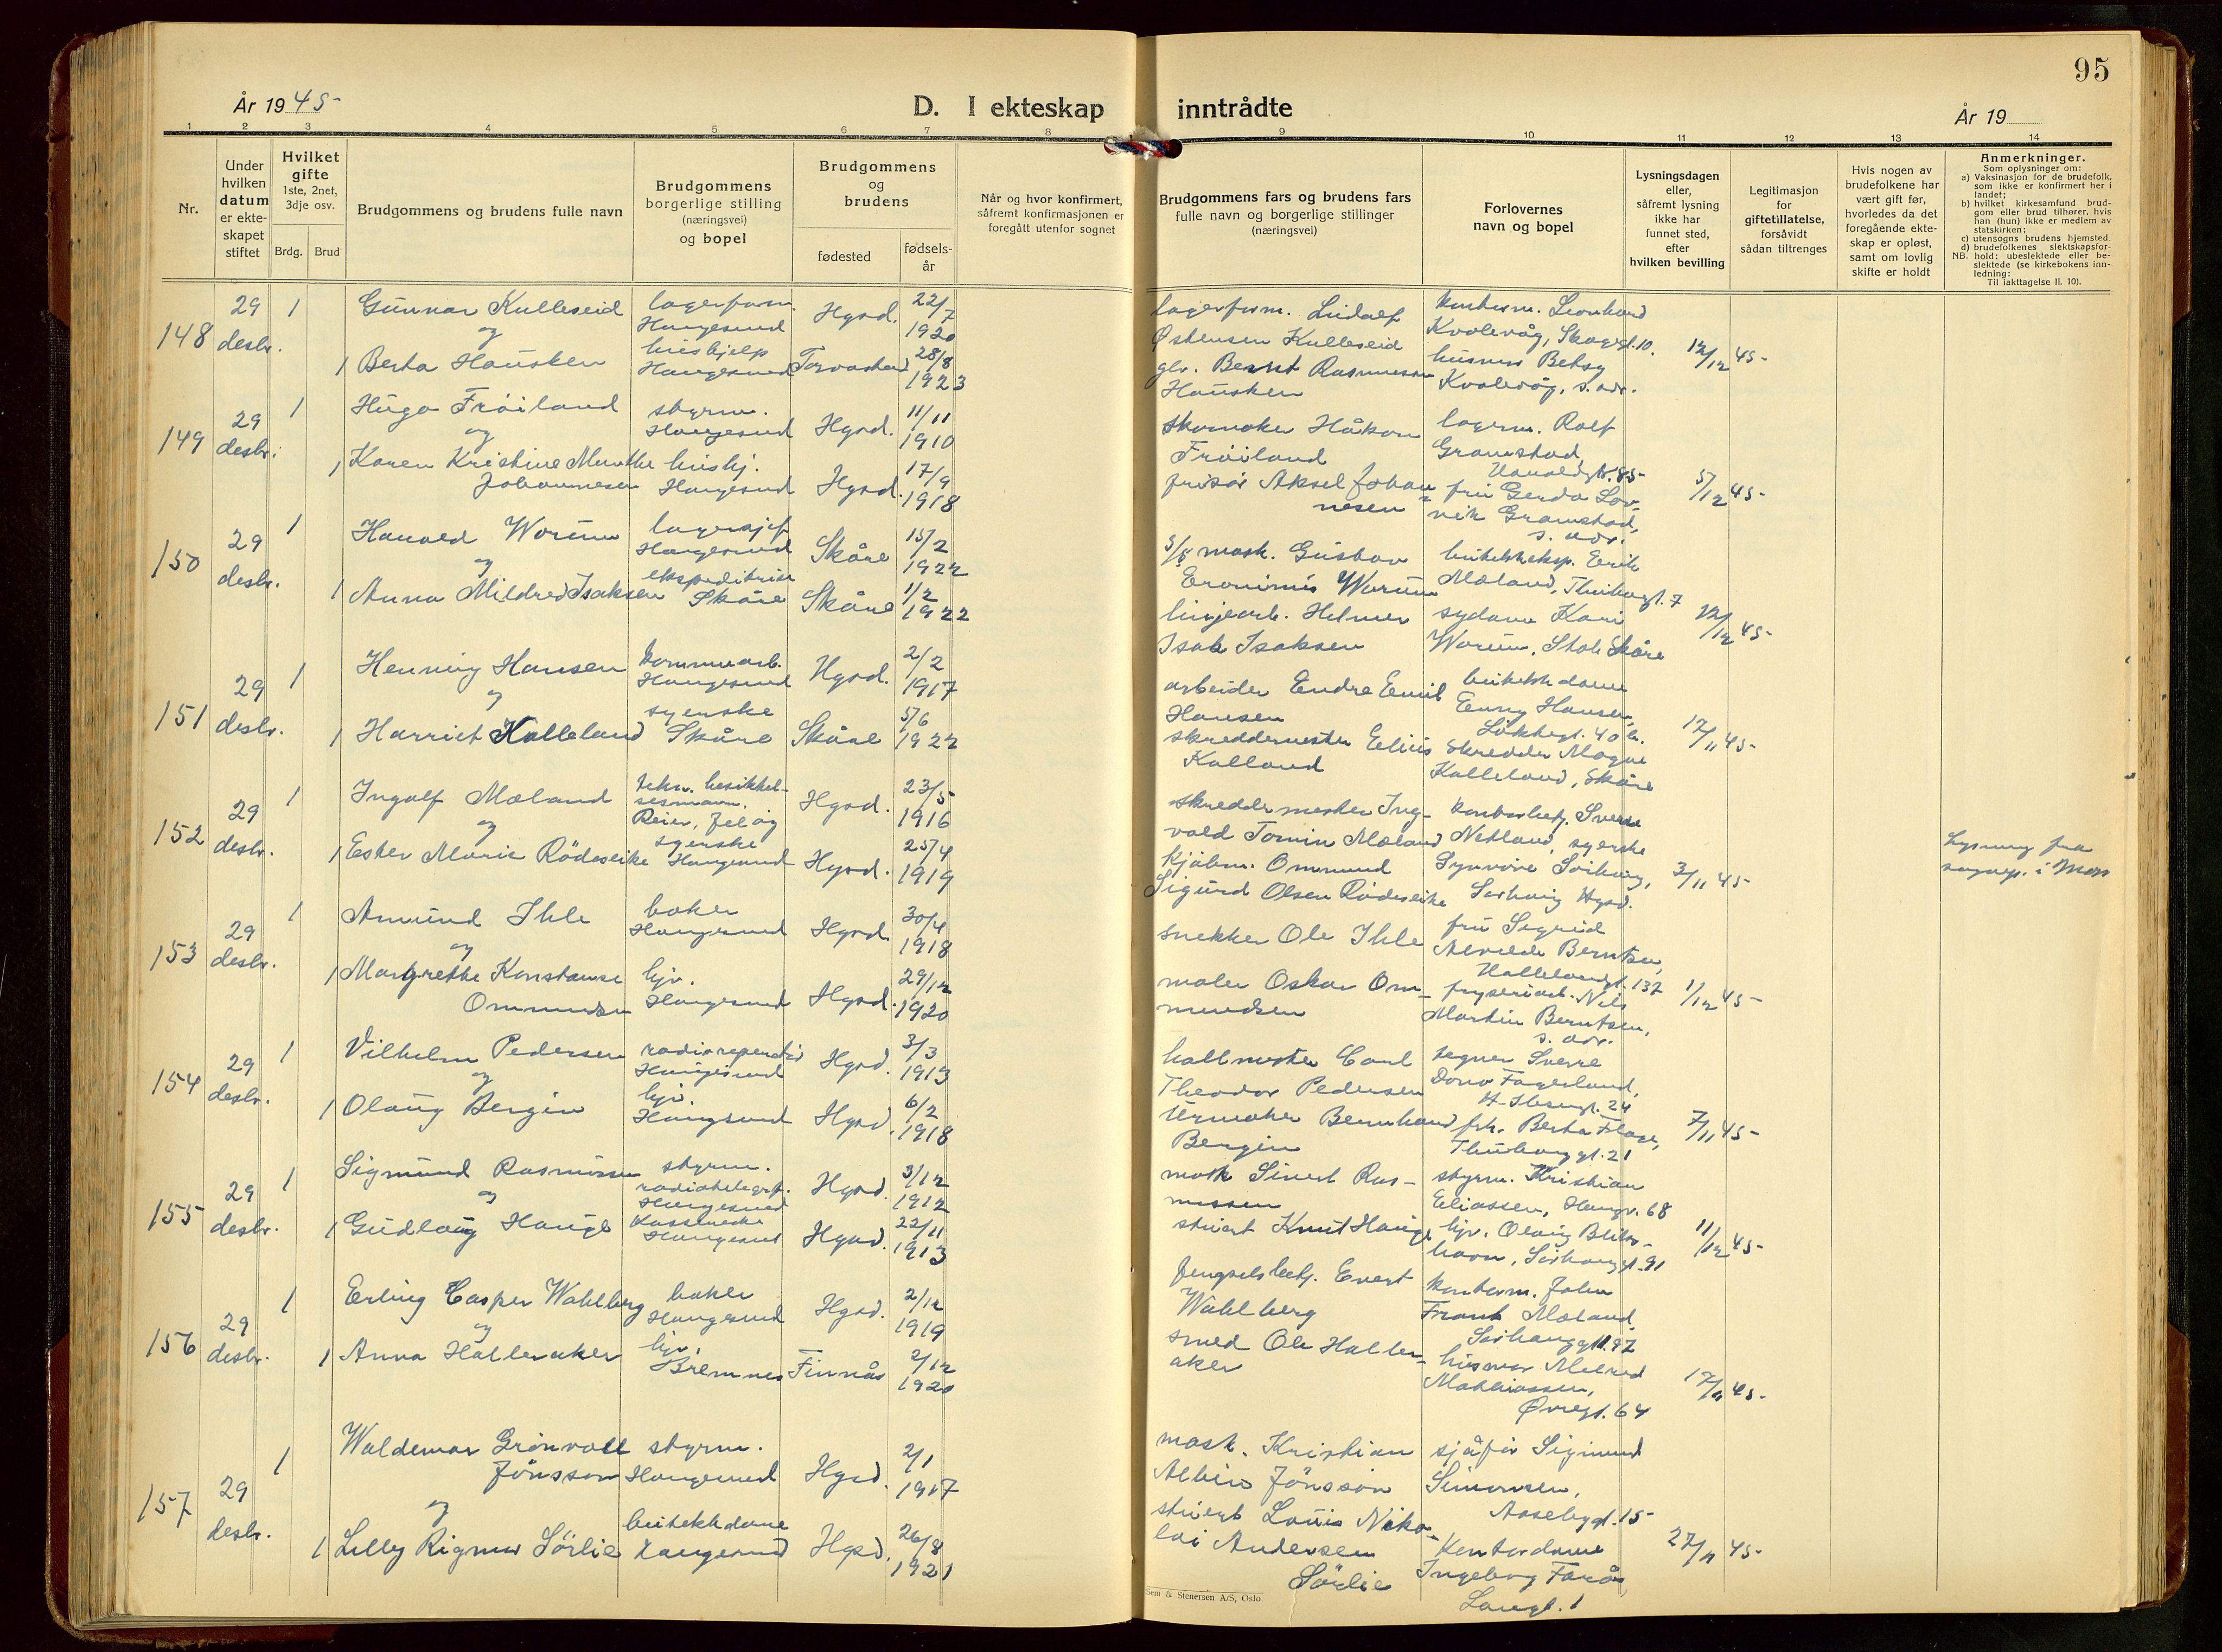 95
År 1945-
D. I ekteskap inntrådte
År 19
1 2 3 4 5 6 7 8 9 10 11 12 13 14
Nr.
Under hvilken datum er ekteskapet stiftet
Hvilket gifte
1ste, 2net, 3dje osv.
Brdg. Brud
Brudgommens og brudens fulle navn
Brudgommens borgerlige stilling (næringsvei) og bopel
Brudgommens og brudens
fødested
fødsels-år
Når og hvor konfirmert, såfremt konfirmasjonen er foregått utenfor sognet
Brudgommens fars og brudens fars fulle navn og borgerlige stillinger (næringsvei)
Forlovernes navn og bopel
Lysningsdagen eller, såfremt lysning ikke har funnet sted, efter hvilken bevilling
Legitimasjon for giftetillatelse, forsåvidt sådan tiltrenges
Hvis nogen av brudefolkene har vært gift før, hvorledes da det foregående ekteskap er opløst, samt om lovlig skifte er holdt
Anmerkninger.
Som oplysninger om:
a) Vaksinasjon for de brudefolk, som ikke er konfirmert her i landet;
b) hvilket kirkesamfund brudgom eller brud tilhører, hvis han (hun) ikke er medlem av statskirken;
c) utensogns brudens hjemsted.
d) brudefolkenes slektskapsforhold: ubeslektede eller beslektede (se kirkebokens innledning:
NB.
Til iakttagelse II. 10).
148 29 desbr. 1 Gunnar Kulleseid lagerform. Haugesund Hgsd. 22/7 1920
og
1 Berta Hausken hushjelp Haugesund Torvastad 28/8 1923
lagerform. Lidalf Østensen Kulleseid
glv. Bernt Rasmussen Hausken
kontorm. Leonhard Kvalevåg, Skogegt. 10.
husmor Betsy Kvalevåg, s. adr.
12/12 45-
149 29 desbr. 1 Hugo Frøiland styrm. Haugesund Hgsd. 11/11 1910
og
1 Karen Kristine Munthe Johannesen hushj. Haugesund Hgsd. 17/9 1918
skomaker Håkon Frøiland
frisør Aksel Johannesen
lagerm. Rolf Gramstad, Haraldsgt. 85-
fru Gerda Lovvik Gramstad, s. adr.
5/12 45-
150 29 desbr. 1 Harald Worum lagersjef Haugesund Skåre 15/2 1922
og
1 Anna Mildred Isaksen ekspeditrise Skåre Skåre 1/2 1922
mask. Gustav Worum
linjearb. Helmer Isak Isaksen
butikkeksp. Erik Mæland, gt. 7
sydame Kari Worum, Skåre
12/12 45-
151 29 desbr. 1 Henning Hansen kommunearb. Haugesund Hgsd. 2/2 1917
og
1 Harriet Kalleland syerske Skåre Skåre 5/6 1922
arbeider Endre Emil Hansen
skreddermester Elius Kalland
butikkdame Enny Hansen,
skredder Magne Kalleland, Skåre
12/11 45-
152 29 desbr. 1 Ingolf Mæland tekn. Hgsd. 23/5 1916
og
1 Ester Marie Rødeseike syerske Haugesund Hgsd. 25/4 1919
skreddermester Ingvald Tomin Mæland
Ommund Sigurd Olsen Rødeseike
Sverre Netland, syerske
Synnøve Hgsd.
3/11 45-
Lysning fra sognepr. i Moss
153 29 desbr. 1 Amund Ihle baker Haugesund Hgsd. 30/4 1918
og
1 Margrethe Konstanse Ommundsen hjv. Haugesund Hgsd. 29/12 1920
snekker Ole Ihle
maler Oskar Ommundsen
fru Sigrid Alvilde Berntsen, gt. 137
fryseriarb. Nils Martin Berntsen, s. adr.
1/12 45-
154 29 desbr. 1 Vilhelm Pedersen radioreparatør Haugesund Hgsd. 3/3 1913
og
1 Olaug Bergin hjv. Haugesund Hgsd. 6/2 1918
hallmester Carl Theodor Pedersen
Urmaker Bernhard Bergin
tegner Sverre Fagerland, H. Ibsengt. 24
frk. Berta gt. 21
7/11 45-
155 29 desbr. 1 Sigmund Rasmussen styrm. radiotelegrf. Haugesund Hgsd. 3/12 1912
og
1 Gudlaug Hauge Haugesund Hgsd. 22/11 1913
mask Sivert Rasmussen
stuert Knut Hauge
styrm. Kristian Eliassen, Haugv. 68
hjv. Olaug gt. 91
11/12 45-
156 29 desbr. 1 Erling Casper Wahlberg baker Haugesund Hgsd. 2/12 1919
og
1 Anna Halleraker hjv. Bremnes Finnås 2/12 1920
fengselsbetj. Evert Wahlberg
smed Ole Halleraker
kontorm. John Frank Mæland,
husmor Mathiassen, Øvregt. 64
17/11 45-
157 29 desbr. 1 Waldemar Grönvall Jönsson styrm. Haugesund Hgsd. 2/1 1917
og
1 Lilly Rigmor Sörlie butikkdame Haugesund Hgsd. 26/8 1921
mask. Kristian Albin Jönsson
stuert Louis Nikolai Andersen Sörlie
sjåfør Sigmund Simonsen, gt. 15-
Kontordame Ingeborg Farås, Langt. 1
27/11 45-
Sem & Stenersen A/S, Oslo